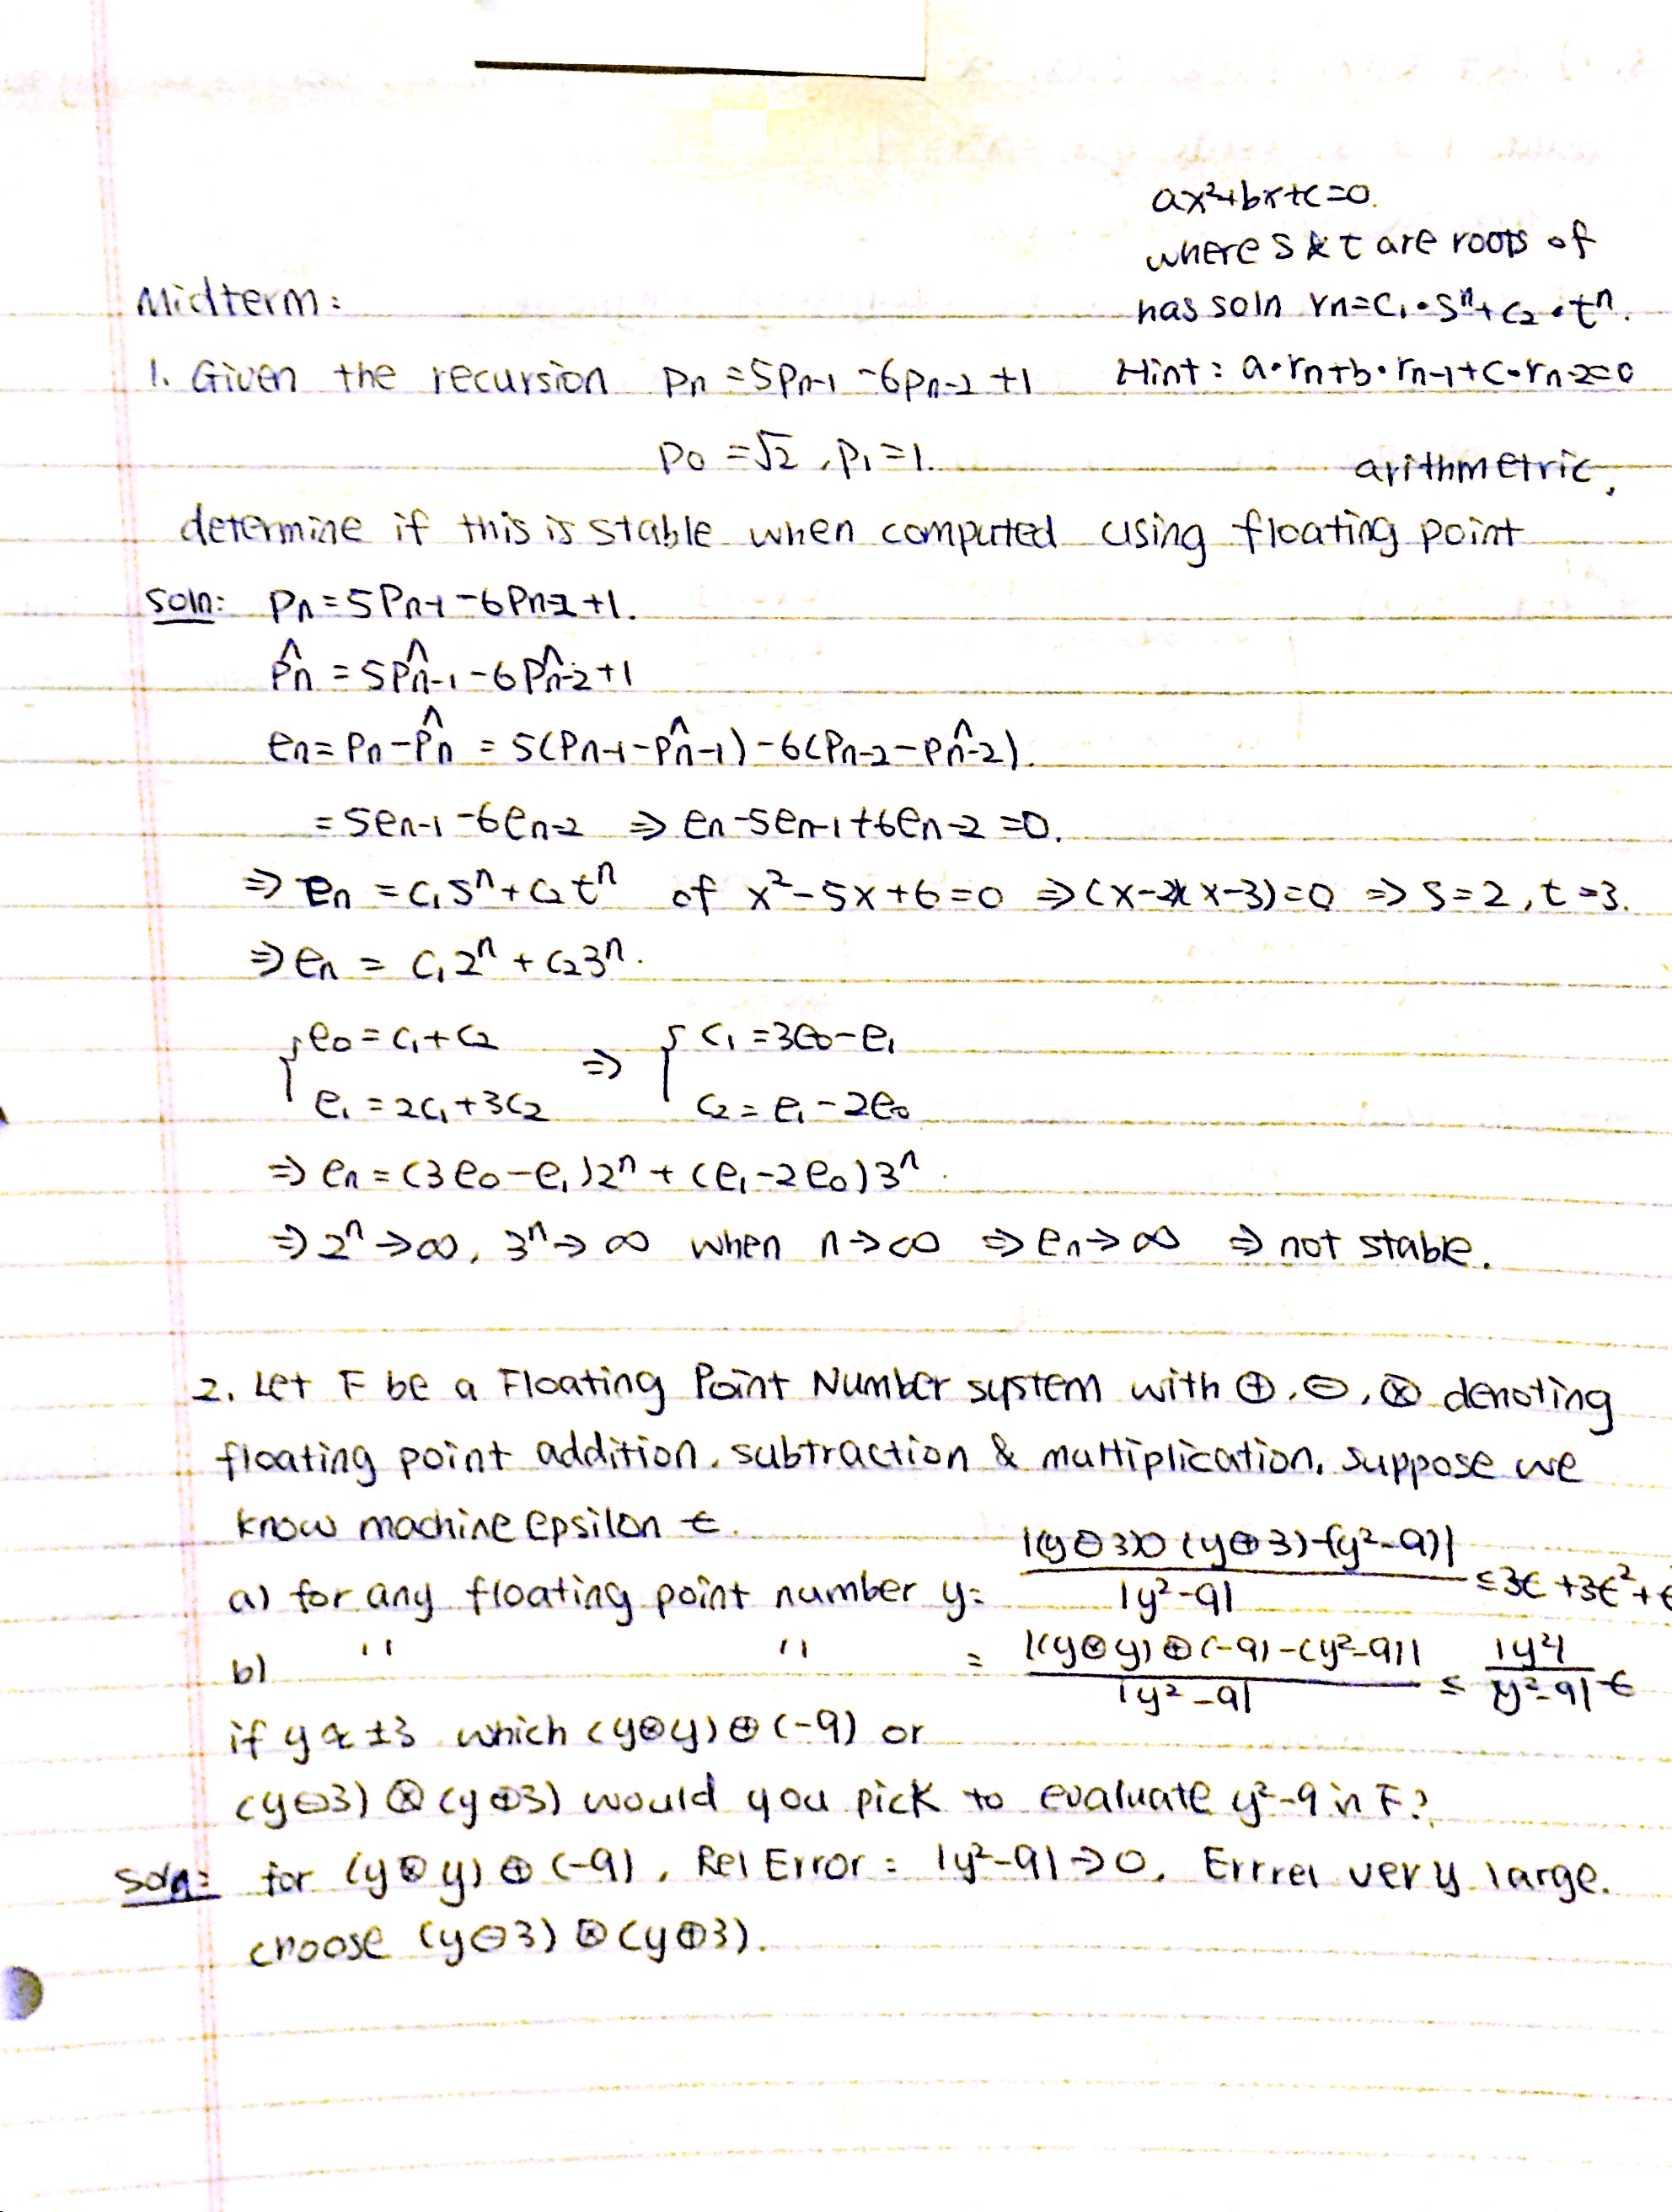 ax²+bx+c=0.
where s & t are roots of
Midterm: has soln rn=C₁·sⁿ+C₂·tⁿ.
1. Given the recursion Pn=5Pn-1-6Pn-2+1 Hint: a·rn+b·rn-1+c·rn-2=0
P0=√2, P1=1.
arithmetric,
determine if this is stable when computed using floating point
soln: Pn=5Pn-1-6Pn-2+1.
P̂n=5P̂n-1-6P̂n-2+1
en=Pn-P̂n=5(Pn-1-P̂n-1)-6(Pn-2-P̂n-2).
=5en-1-6en-2 ⇒ en-5en-1+6en-2=0.
⇒ en=C₁sⁿ+C₂tⁿ of x²-5x+6=0 ⇒(x-2)(x-3)=0 ⇒ s=2, t=3.
⇒ en=C₁2ⁿ+C₂3ⁿ.
{e0=C₁+C₂ ⇒ {C₁=3e0-e1
e1=2C₁+3C₂ C₂=e1-2e0
⇒ en=(3e0-e1)2ⁿ+(e1-2e0)3ⁿ.
⇒ 2ⁿ→∞, 3ⁿ→∞ when n→∞ ⇒ en→∞ ⇒ not stable.
2. Let F be a Floating Point Number system with ⊕, ⊖, ⊗ denoting
floating point addition, subtraction & multiplication, suppose we
know machine epsilon ϵ.
a) for any floating point number y: |(y⊖3)⊗(y⊕3)-(y²-9)| / |y²-9| ≤3ϵ+3ϵ²+ϵ
b) " " = |(y⊗y)⊕(-9)-(y²-9)| / |y²-9| ≤ |y²| / |y²-9| ϵ
if y≈±3 which (y⊗y)⊕(-9) or
(y⊖3)⊗(y⊕3) would you pick to evaluate y²-9 in F?
soln: for (y⊗y)⊕(-9), Rel Error: |y²-9|→0, Errrel very large.
choose (y⊖3)⊗(y⊕3).